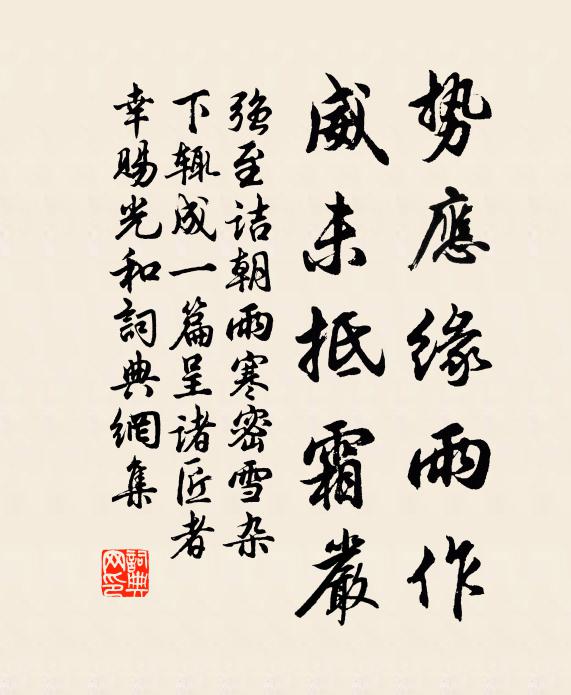 势應缘雨作
威未抵霜嚴
强至诘朝雨寒密雪杂
下辄成一篇呈诸匠者
幸賜光和詞典網集
詞典网印